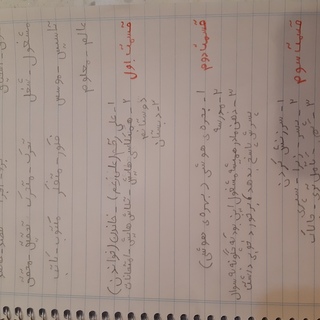 مشغول - شغل تحرک - متحرک تحقیق - محقق
تاسیس - موسس فکور - متفکر مکتوب - کاتب
عالم - معلوم
قسمت اول ۱- علی رغم (علی زعم) - خاندن (خواندن)
۲- همکلاسی هایش - تلاش هایش - امتحانات
دوستانم
۲- دبستان
قسمت دوم ۱- بهره ی هوشی (بهره ی هوشی)
۲- مدرسه
۳- ذهن مادر همیشه مشغول این بود که چگونه به سوال
پسرش پاسخ بدهد که
قسمت سوم ۱- سرزنش کردن
۲- پسر - زیرا - سپری